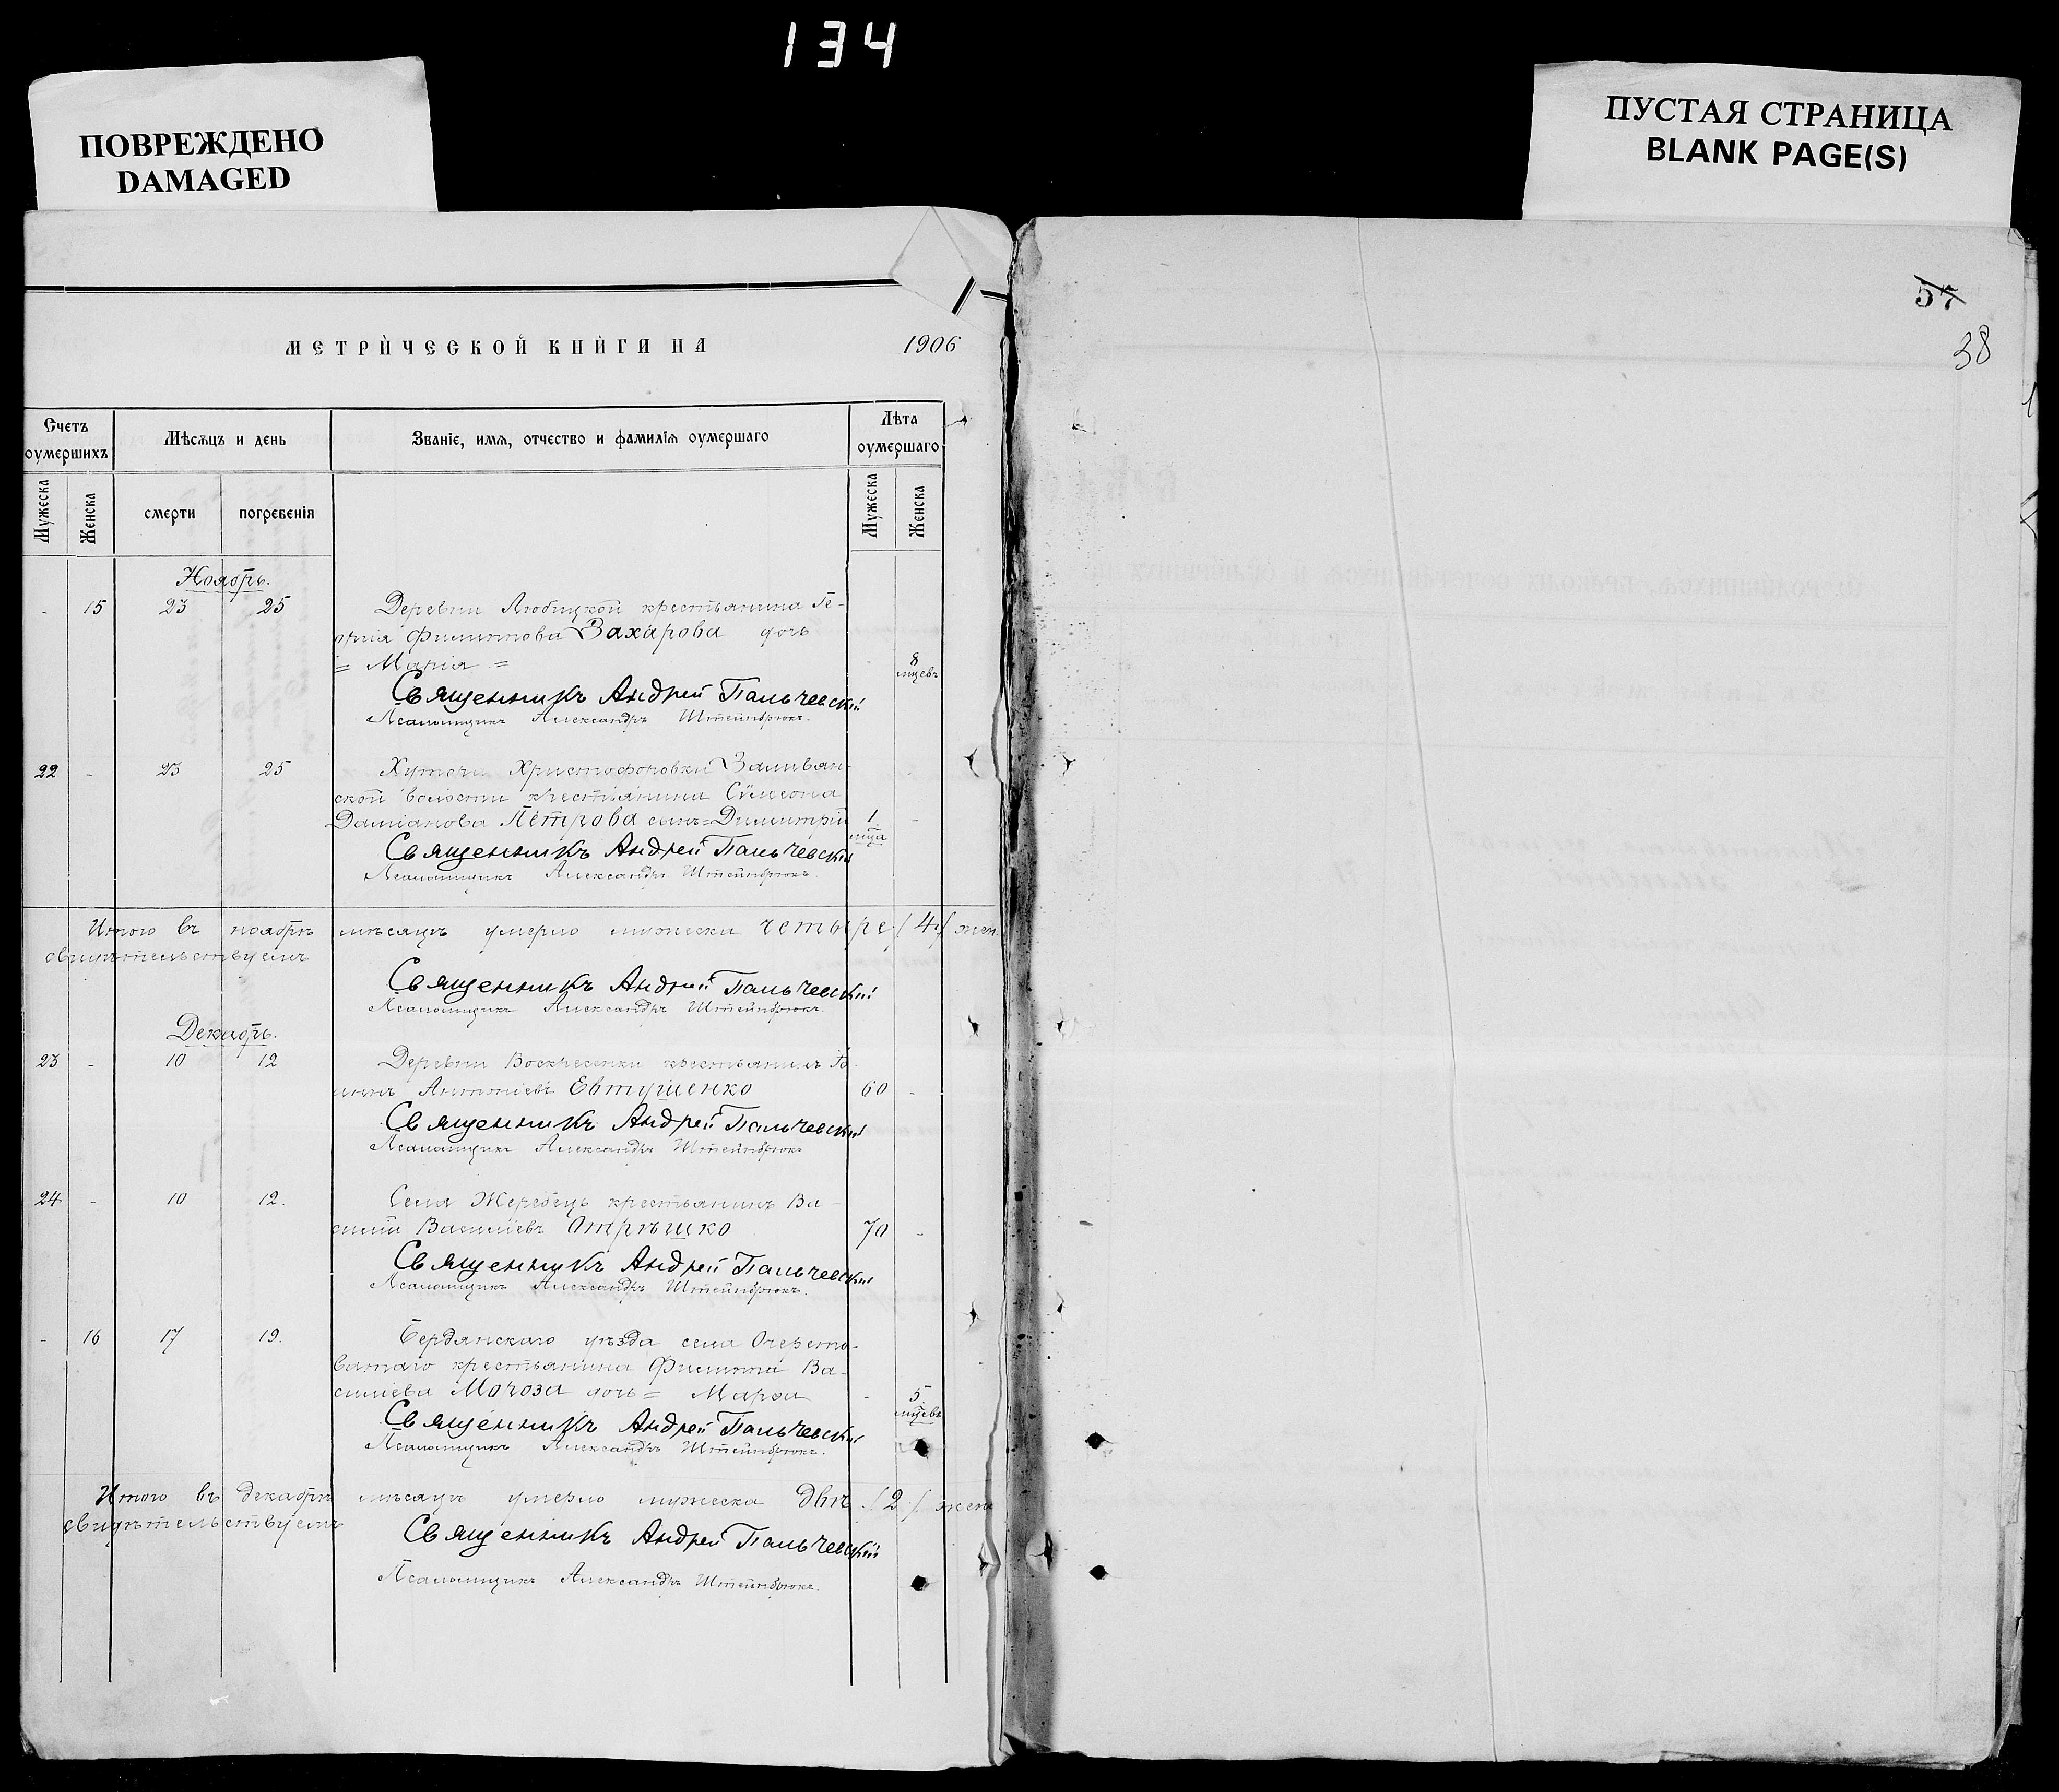 134
ПОВРЕЖДЕНО
DAMAGED
ПУСТАЯ СТРАНИЦА
BLANK PAGE(S)
МЕТРИЧЕСКОЙ КНИГИ НА 1906
Счетъ оумершихъ
Мѣсяцъ и день
Званіе, имя, отчество и фамилія оумершаго
Лѣта оумершаго
Мужеска
Женска
смерти
погребенія
Мужеска
Женска
Ноябрь.
- 15 23 25 Деревни Любицкой крестьянина Ге-
оргія Филиппова Захарова дочь
= Марія = - 8 мцевъ
Священникъ Андрей Пальчевскій
Псаломщикъ Александръ Штейнбрюкъ.
22 - 23 25 Хутора Христофоровки Заливан-
ской волости крестьянина Сѵмеона
Даміанова Петрова сынъ = Димитрій 1 мца -
Священникъ Андрей Пальчевскій
Псаломщикъ Александръ Штейнбрюкъ.
Итого въ ноябрѣ мѣсяцѣ умерло мужеска четыре /4/ жен.
свидѣтельствуемъ
Священникъ Андрей Пальчевскій
Псаломщикъ Александръ Штейнбрюкъ.
Декабрь.
23 - 10 12 Деревни Воскресенки крестьянинъ
Антоніевъ Евтушенко 60 -
Священникъ Андрей Пальчевскій
Псаломщикъ Александръ Штейнбрюкъ
24 - 10 12. Села Жеребецъ крестьянинъ Ва-
силій Василіевъ Отрѣшко 70 -
Священникъ Андрей Пальчевскій
Псаломщикъ Александръ Штейнбрюкъ.
- 16 17 19. Бердянскаго уѣзда села Очерето-
ватаго крестьянина Филиппа Ва-
силіева Мороза дочь = Марѳа - 5 мцевъ
Священникъ Андрей Пальчевскій
Псаломщикъ Александръ Штейнбрюкъ.
Итого въ декабрѣ мѣсяцѣ умерло мужеска двѣ /2/ жен
свидѣтельствуемъ
Священникъ Андрей Пальчевскій
Псаломщикъ Александръ Штейнбрюкъ.
57
38